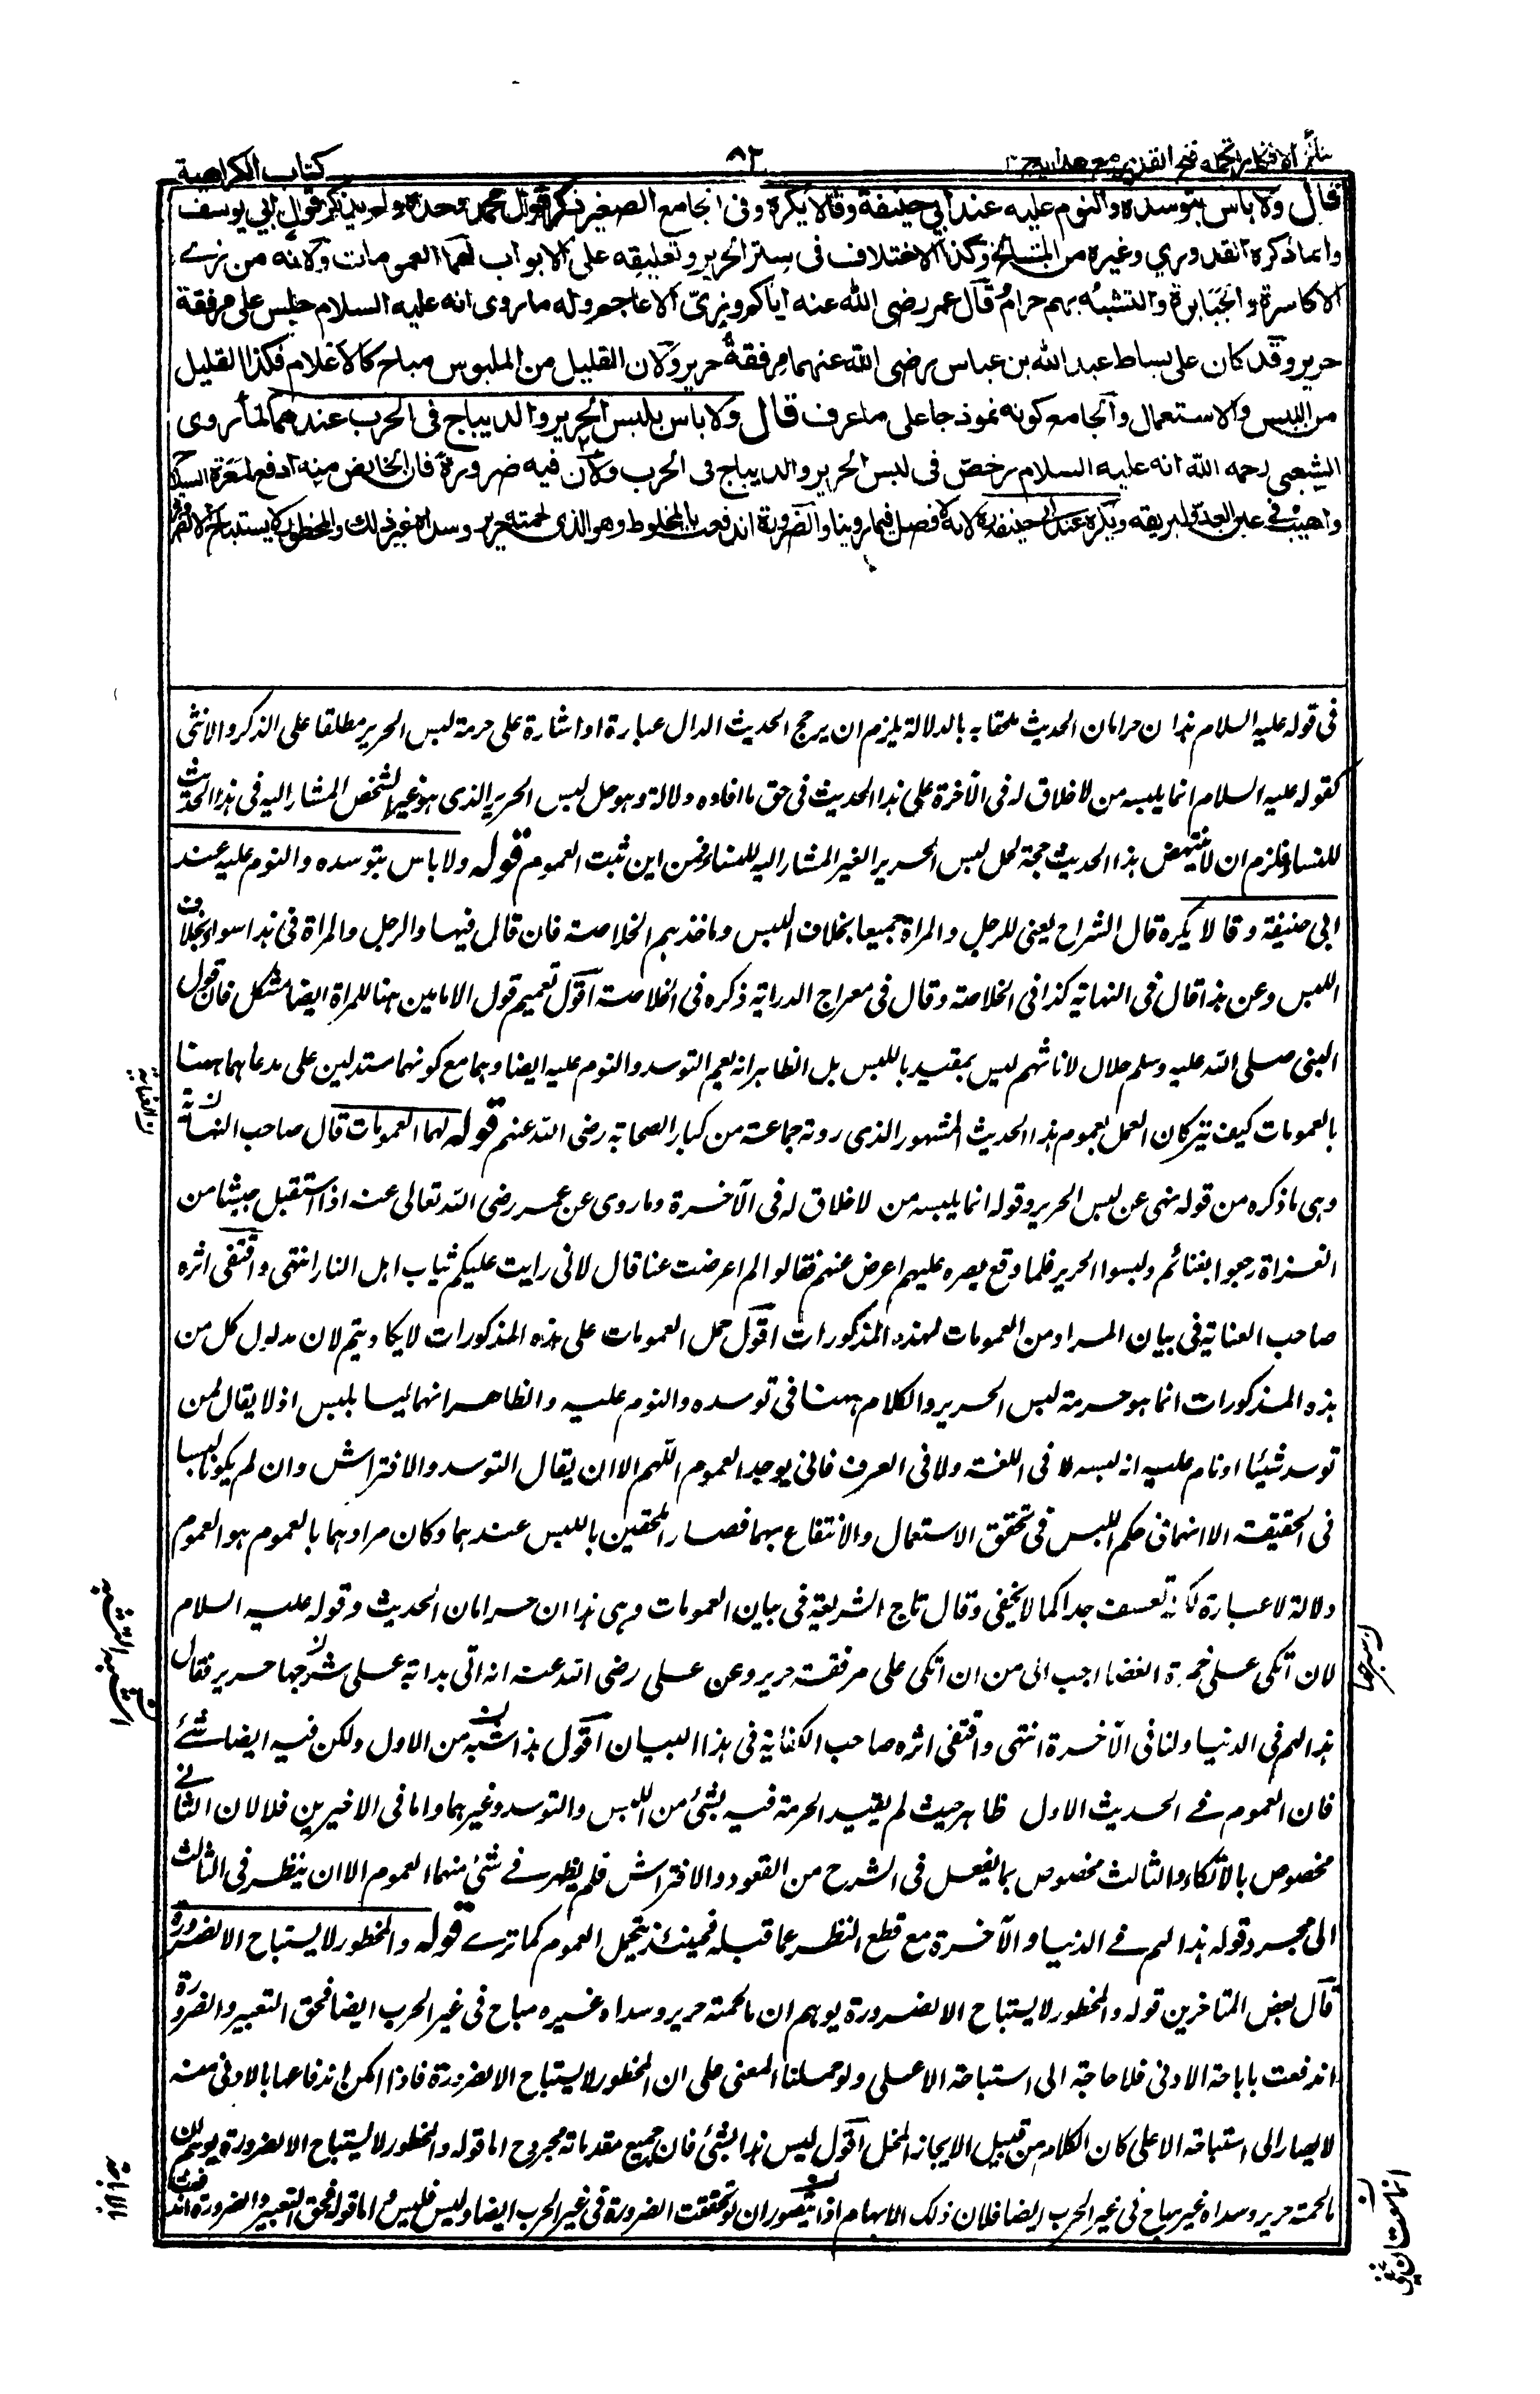 نتائج الافكار تكمله فتح القدير مع هدايه ج ٢
٨٢
كتاب الكراهية
قال ولا باس بتوسده والنوم عليه عند ابي حنيفة وقالا يكره وفى الجامع الصغير ذكر قول محمد وحده ولم يذكر قول ابي يوسف
وانما ذكره القدوري وغيره من المشايخ وكذا الاختلاف فى ستر الحرير وتعليقه على الابواب لهما العمومات ولانه من زي
الاكاسرة والجبابرة والتشبه بهم حرام قال عمر رضى الله عنه اياكم وزيّ الاعاجم وله ما روى انه عليه السلام جلس على مرفقة
حرير وقد كان على بساط عبد الله بن عباس رضى الله عنهما مرفقة حرير ولان القليل من الملبوس مباح كالاعلام فكذا القليل
من اللبس والاستعمال والجامع كونه نموذجا على ما عرف قال ولا باس بلبس الحرير والديباج فى الحرب عندهما لما روى
الشعبي رحمه الله انه عليه السلام رخص فى لبس الحرير والديباج فى الحرب ولان فيه ضرورة فان الخالص منه ادفع لمعرة السلاح
واهيب في عين العدو لبريقه ويكره عند ابي حنيفة لانه لا فصل فيما روينا والضرورة اندفعت بالمخلوط وهو الذى لحمته حرير وسداه غير ذلك والمحظور لا يستباح الا لضرورة
فى قوله عليه السلام هذان حرامان الحديث ملحقا به بالدلالة يلزم ان يرجح الحديث الدال عبارة او اشارة على حرمة لبس الحرير مطلقا على الذكر والانثى
كقوله عليه السلام انما يلبسه من لا خلاق له فى الآخرة على هذا الحديث فى حق ما افاده دلالة وهو حل لبس الحرير الذى هو غير الشخص المشار اليه فى هذا الحديث
للنساء فلزم ان لا ينتهض هذا الحديث حجة لحل لبس الحرير الغير المشار اليه للنساء فمن اين ثبت العموم قوله ولا باس بتوسده والنوم عليه عند
ابى حنيفة وقالا يكره قال الشراح يعنى للرجل والمراة جميعا بخلاف اللبس وماخذهم الخلاصة فان قال فيها والرجل والمراة فى هذا سواء بخلاف
اللبس وعن هذا قال فى النهاية كذا فى الخلاصة وقال فى معراج الدراية ذكره فى الخلاصة اقول تعميم قول الامامين هنا للمراة ايضا مشكل فان قول
النبى صلى الله عليه وسلم حلال لاناثهم ليس بمقيد باللبس بل الظاهر انه يعم التوسد والنوم عليه ايضا وهما مع كونهما مستدلين على مدعاهما ههنا
بالعمومات كيف يتركان العمل بعموم هذا الحديث المشهور الذى روته جماعة من كبار الصحابة رضى الله عنهم قوله لهما العمومات قال صاحب النهاية
وهى ما ذكره من قوله نهى عن لبس الحرير وقوله انما يلبسه من لا خلاق له فى الآخرة وما روى عن عمر رضى الله تعالى عنه اذا استقبل جيشا من
الغزاة رجعوا بغنائم ولبسوا الحرير فلما وقع بصره عليهم اعرض عنهم فقالوا لم اعرضت عنا قال لانى رايت عليكم ثياب اهل النار انتهى واقتفى اثره
صاحب العناية فى بيان المراد من العمومات لهذه المذكورات اقول حمل العمومات على هذه المذكورات لا يكاد يتم لان مدلول كل من
هذه المذكورات انما هو حرمة لبس الحرير والكلام ههنا فى توسده والنوم عليه والظاهر انهما ليسا بلبس اذ لا يقال لمن
توسد شيئا او نام عليه انه لبسه لا فى اللغة ولا فى العرف فانى يوجد العموم اللهم الا ان يقال التوسد والافتراش وان لم يكونا لبسا
فى الحقيقة الا انهما فى حكم اللبس فى تحقق الاستعمال والانتفاع بهما فصارا ملحقين باللبس عندهما وكان مرادهما بالعموم هو العموم
دلالة لا عبارة لكنه تعسف جدا كما لا يخفى وقال تاج الشريعة فى بيان العمومات وهى هذان حرامان الحديث وقوله عليه السلام
لان اتكى على جمرة الغضا احب الى من ان اتكى على مرفقة حرير وعن على رضى الله عنه انه اتى بدابة على سرجها حرير فقال
هذا لهم فى الدنيا ولنا فى الآخرة انتهى واقتفى اثره صاحب الكفاية فى هذا البيان اقول هذا اشبه من الاول ولكن فيه ايضا شئ
فان العموم فى الحديث الاول ظاهر حيث لم يقيد الحرمة فيه بشئ من اللبس والتوسد وغيرهما واما فى الاخيرين فلا لان الثانى
مخصوص بالاتكاء والثالث مخصوص بما يفعل فى السرج من القعود والافتراش فلم يظهر فى شئ منهما العموم الا ان ينظر فى الثالث
الى مجرد قوله هذا لهم فى الدنيا والآخرة مع قطع النظر عما قبله فحينئذ يحتمل العموم كما ترى قوله والمحظور لا يستباح الا لضرورة
قال بعض المتاخرين قوله والمحظور لا يستباح الا لضرورة يوهم ان ما لحمته حرير وسداه غيره مباح فى غير الحرب ايضا فحق التعبير والضرورة
اندفعت باباحة الادنى فلا حاجة الى استباحة الاعلى ولو حملنا المعنى على ان المحظور لا يستباح الا لضرورة فاذا امكن اندفاعها بالادنى منه
لا يصار الى استباحة الاعلى كان الكلام من قبيل الايجاز المخل اقول ليس هذا بشئ فان جميع مقدماته مجروح اما قوله والمحظور لا يستباح الا لضرورة يوهم ان
ما لحمته حرير وسداه غيره مباح فى غير الحرب ايضا فلان ذلك الايهام اذا يتصور ان لو تحققت الضرورة فى غير الحرب ايضا وليس فليس واما قوله فحق التعبير والضرورة اندفعت